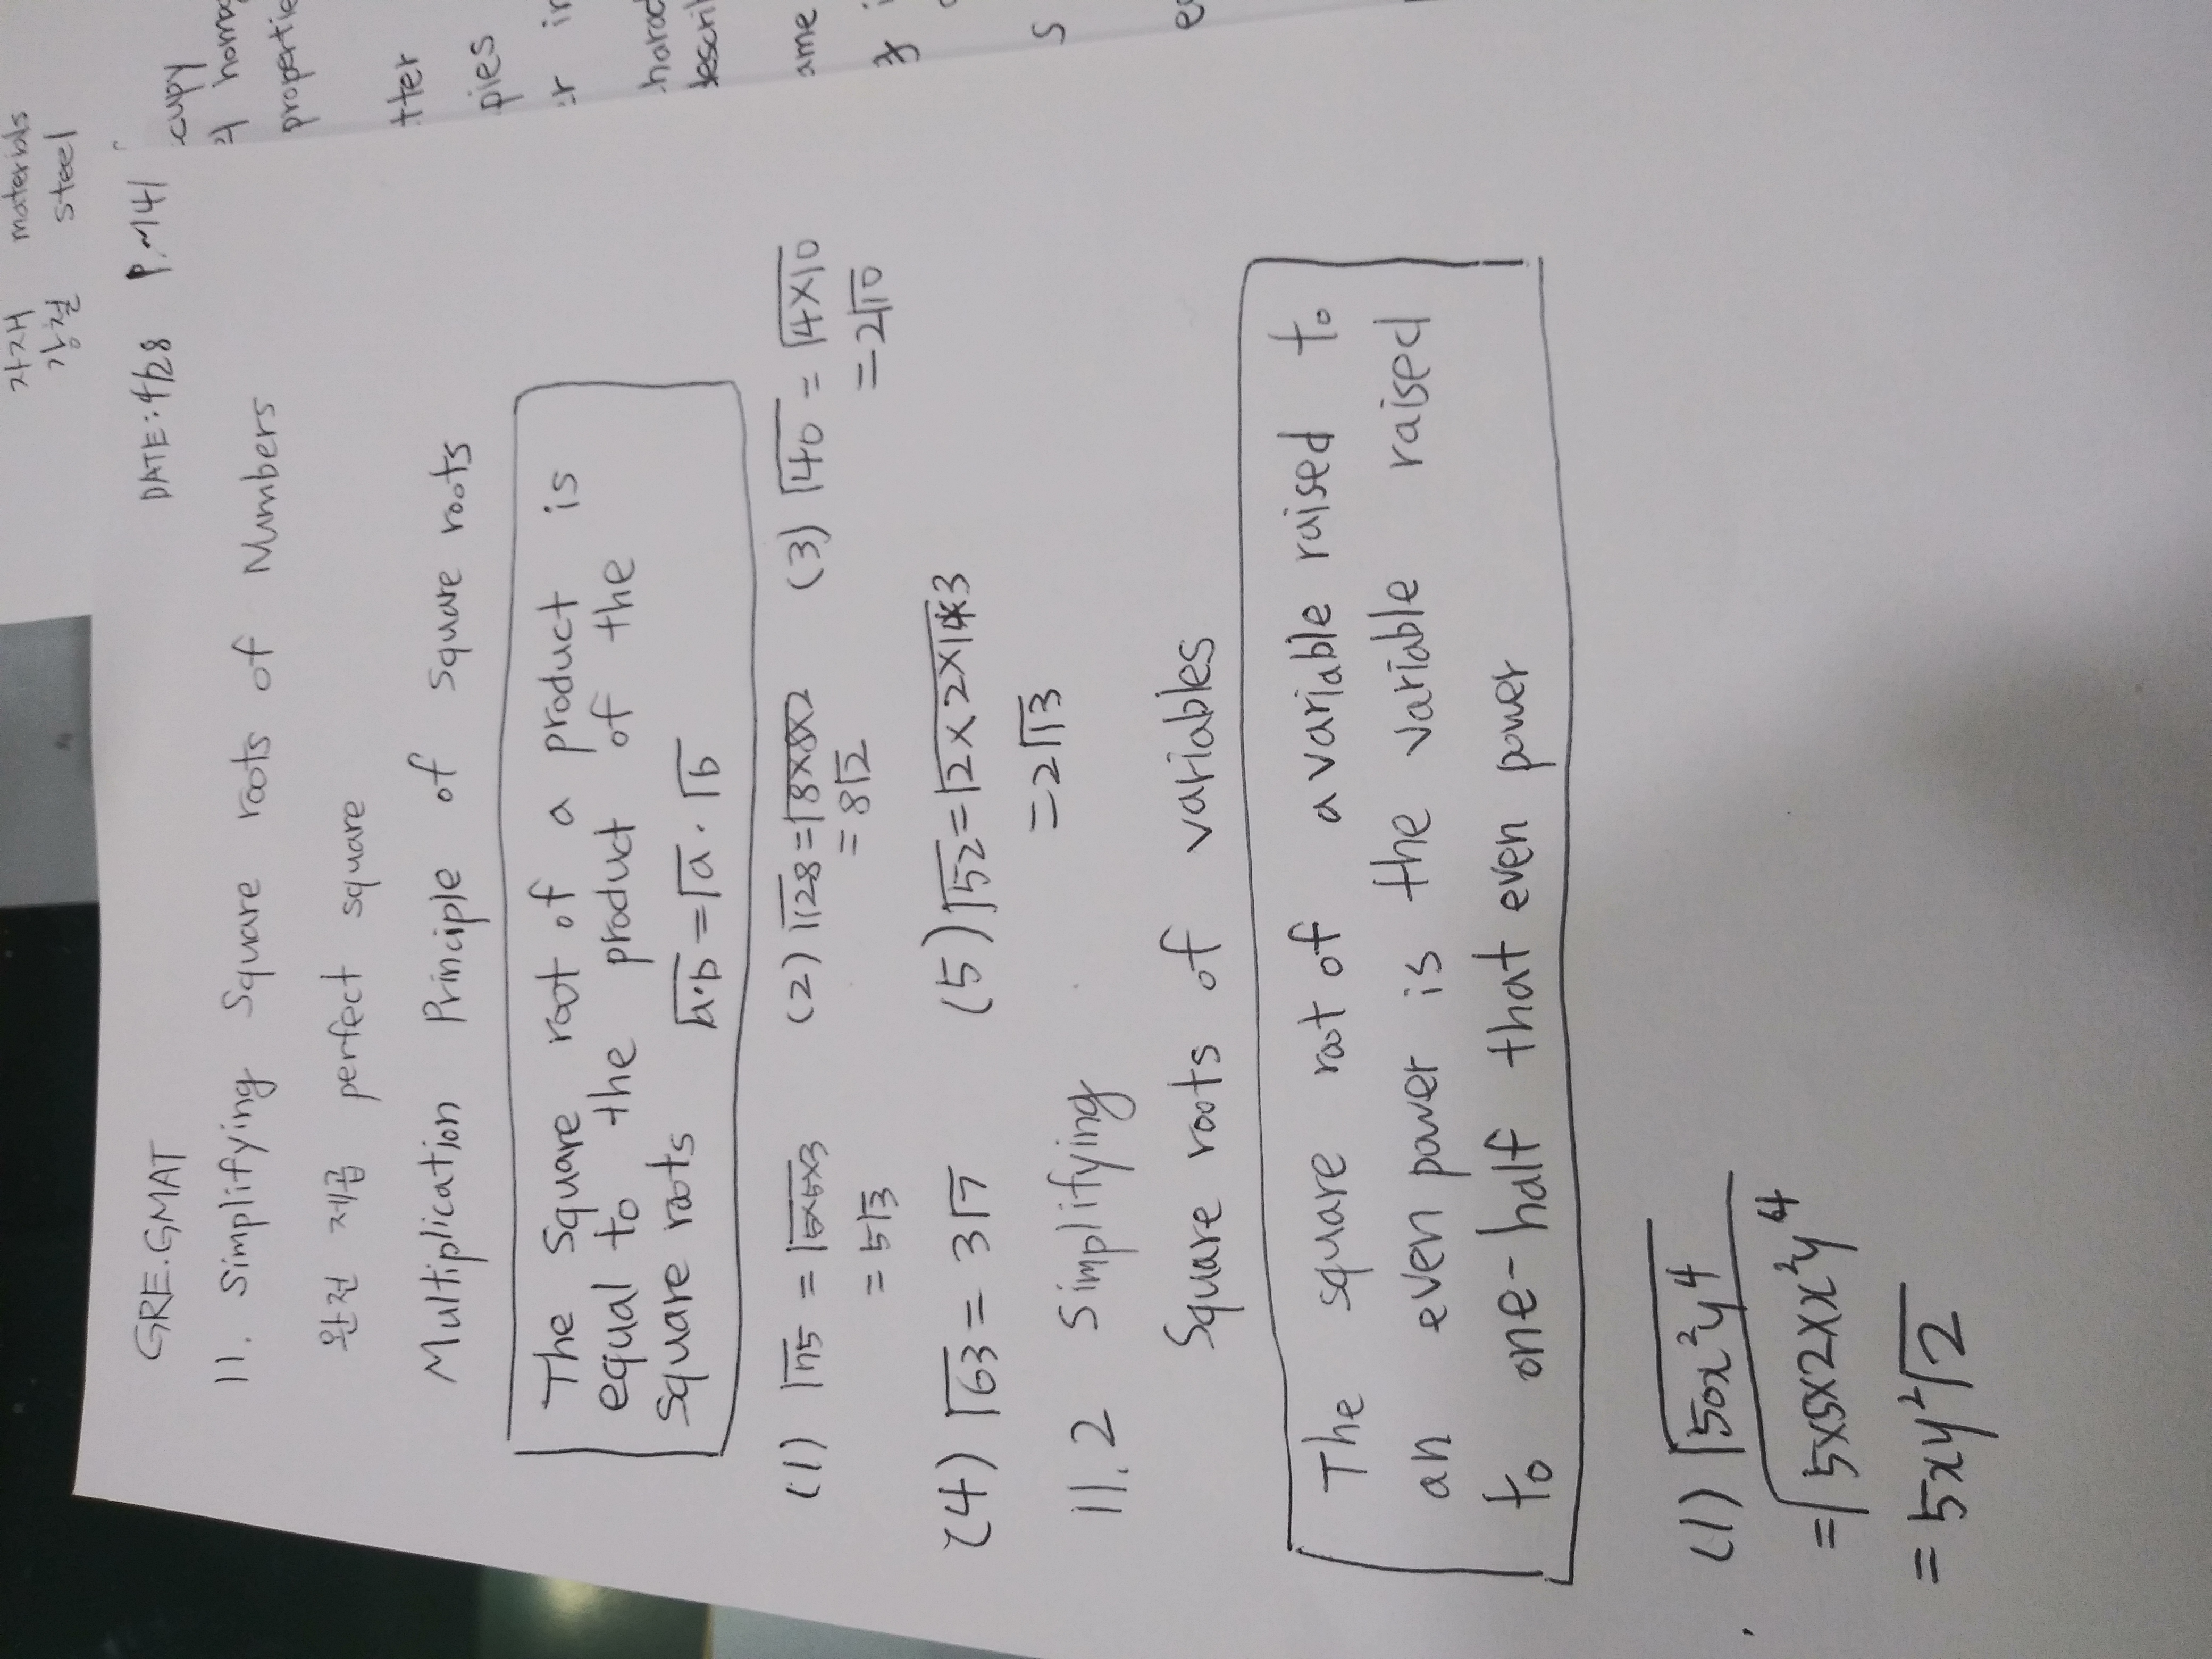 자재 materials
강철 steel
GRE.GMAT DATE: 4/28 P.~141
11. Simplifying Square roots of Numbers
완전 제곱 perfect square
Multiplication Principle of Square roots
The Square root of a product is
equal to the product of the
Square roots √a·b = √a · √b
(1) √75 = √5×5×3 (2) √128 = √8×8×2 (3) √40 = √4×10
= 5√3 = 8√2 = 2√10
(4) √63 = 3√7 (5) √52 = √2×2×13
= 2√13
11.2 Simplifying
Square roots of variables
The square root of a variable raised to
an even power is the variable raised
to one-half that even power
(1) √50x²y⁴
= √5×5×2×x²y⁴
= 5xy²√2
cupy
hom
propertie
tter
pies
r in
harac
descri
ame
s